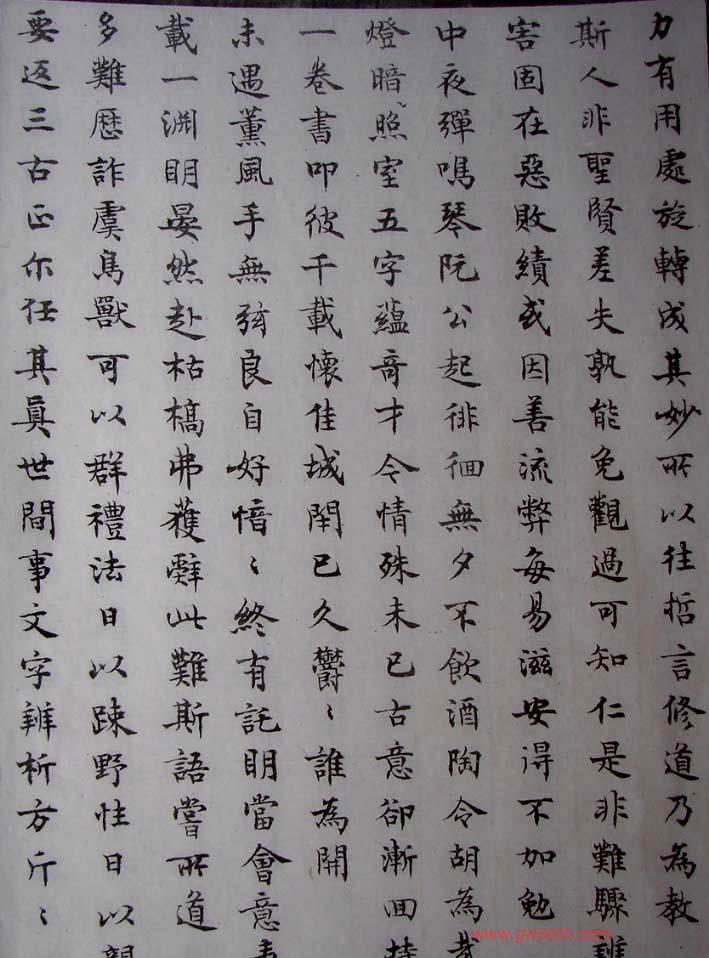 力有用處旋轉成其妙所以往哲言修道乃為教
斯人非聖賢差失孰能免觀過可知仁是非難驟辨
害固在惡敗績或因善流弊每易滋安得不加勉
中夜彈鳴琴阮公起徘徊無夕不飲酒陶令胡為哉
燈暗〻照室五字蘊奇才今情殊未已古意卻漸囬持
一卷書叩彼千載懷佳城閉已久鬱〻誰為開
未遇薰風手無弦良自好愔〻終有託明當會意
載一淵明晏然赴枯槁弗獲辭此難斯語嘗所道
多難歷詐虞鳥獸可以群禮法日以疎野性日以親
要返三古正尔任其真世間事文字辨析方斤〻
www.gw5000.com